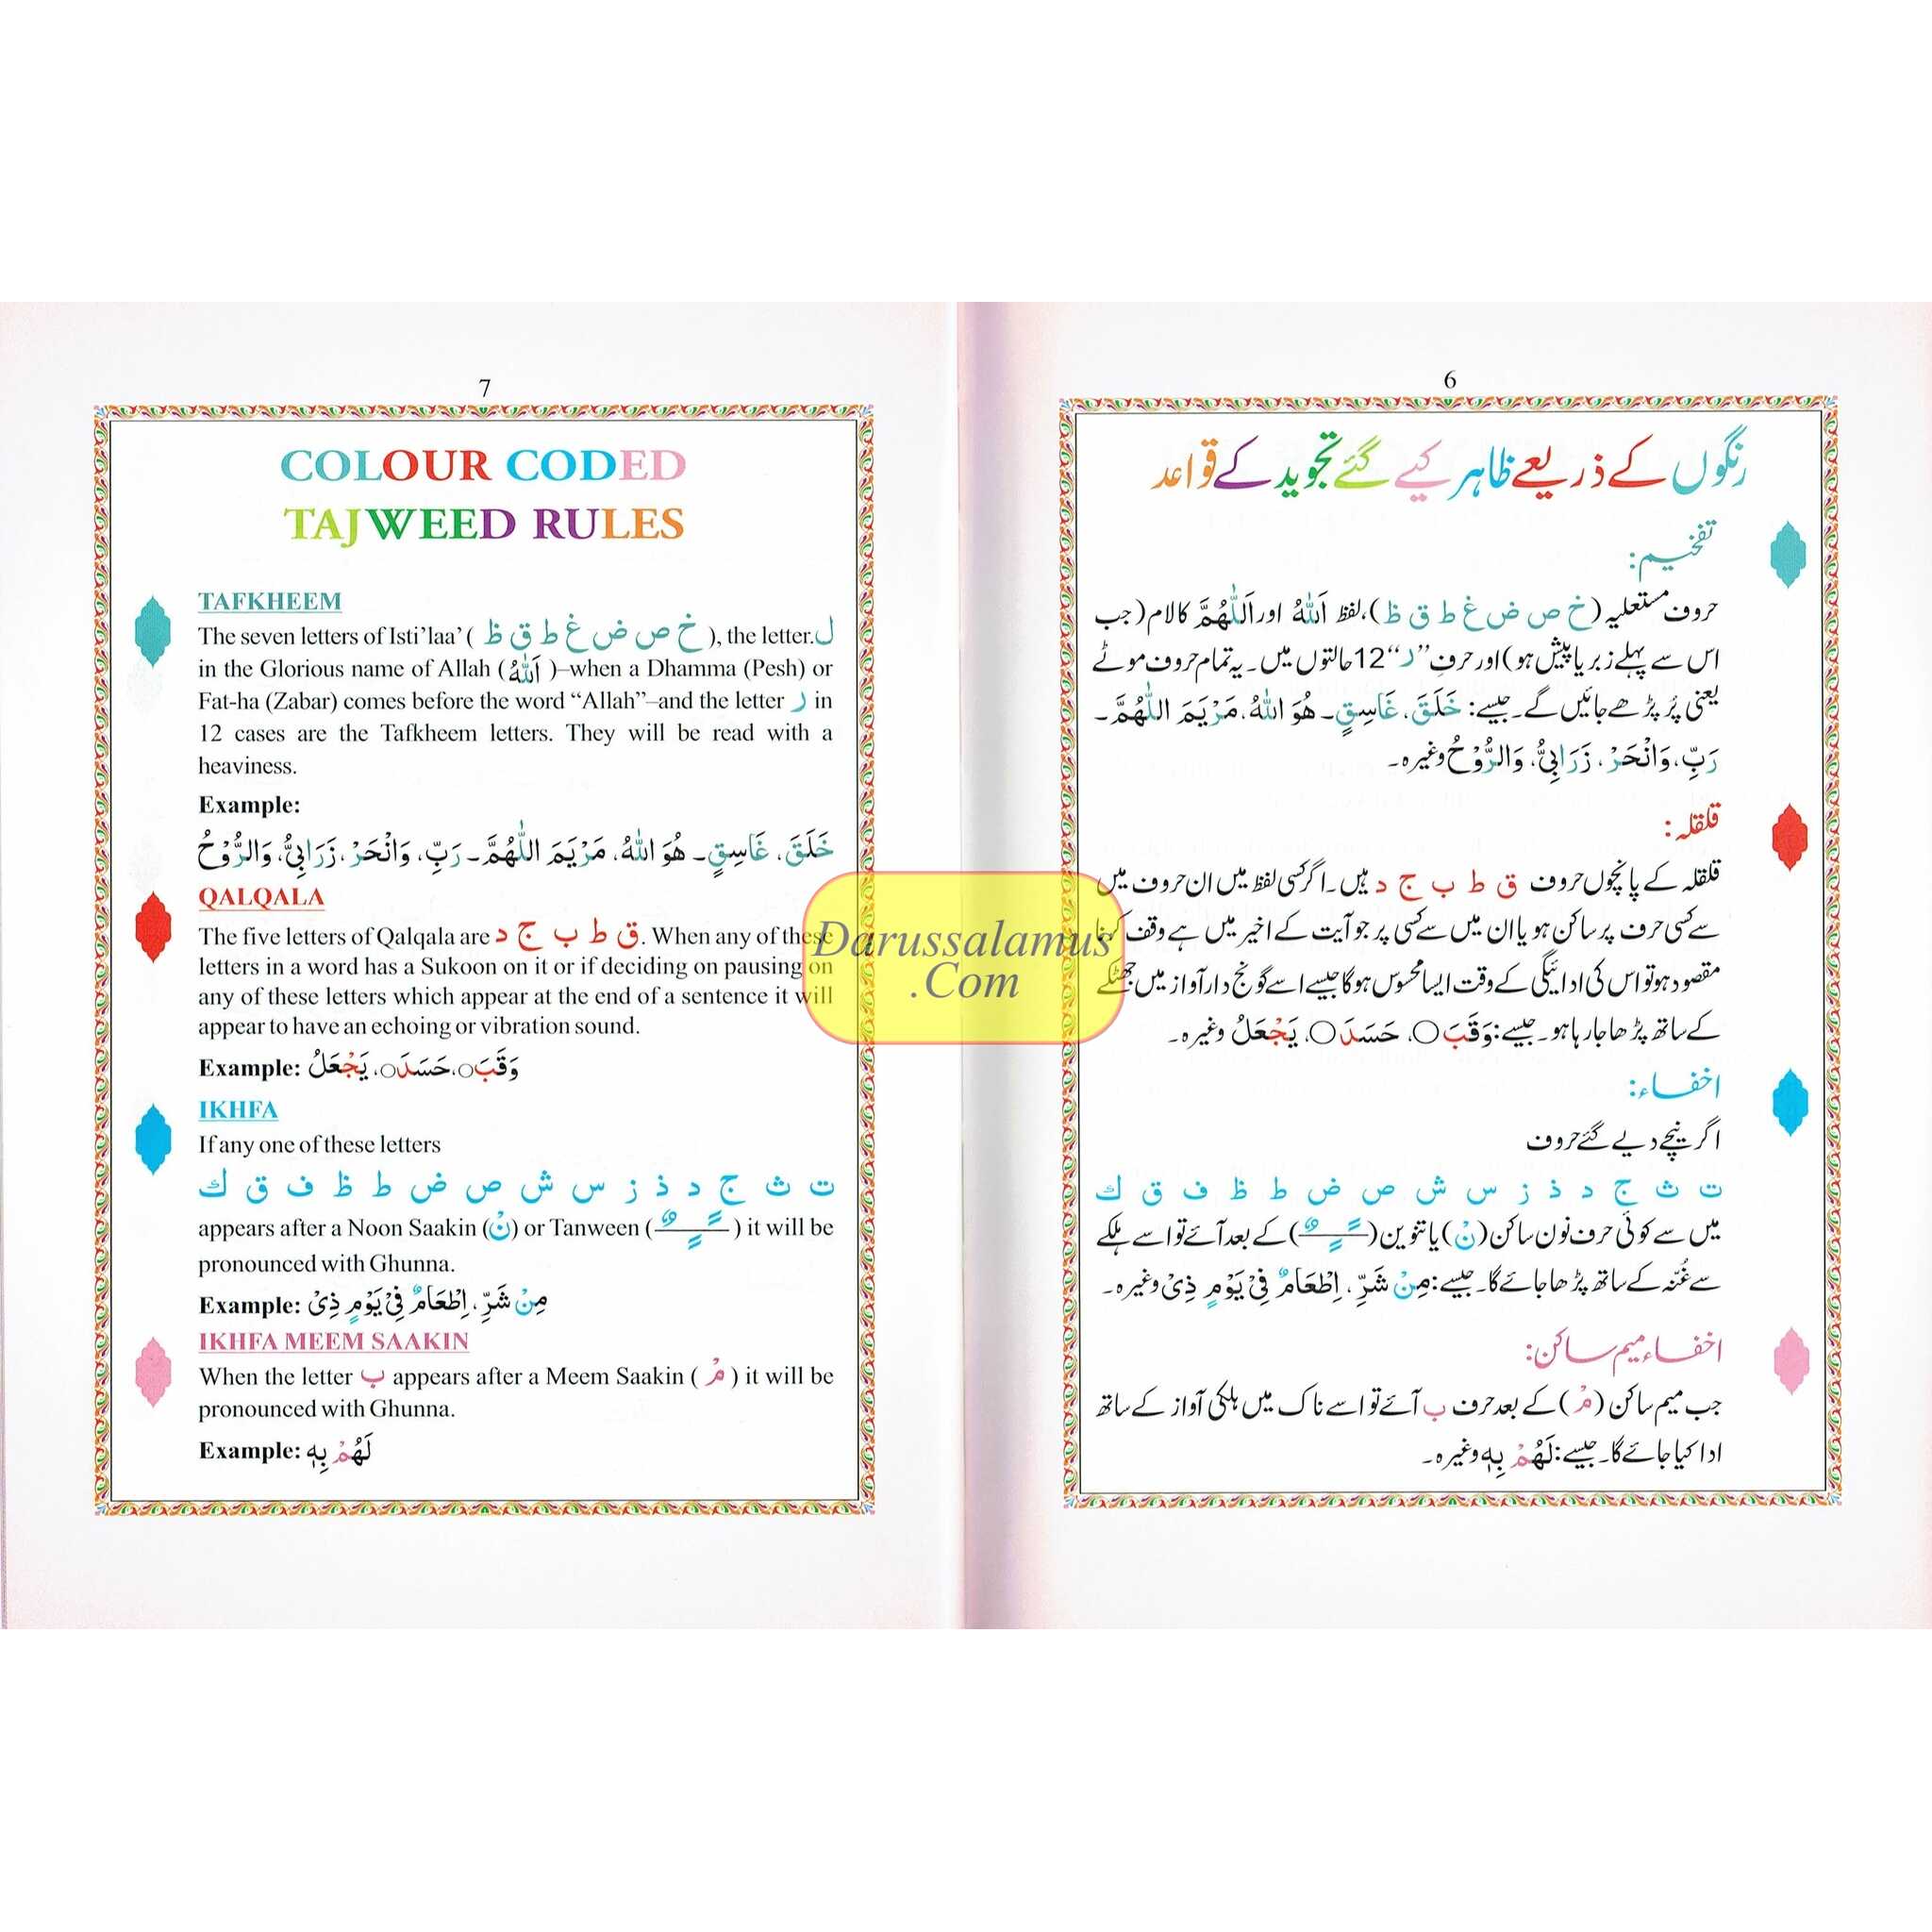 7
COLOUR CODED
TAJWEED RULES
TAFKHEEM
The seven letters of Isti’laa’ ( خ ص ض غ ط ق ظ ), the letter.ل
in the Glorious name of Allah ( اَللّٰهُ )–when a Dhamma (Pesh) or
Fat-ha (Zabar) comes before the word “Allah”–and the letter ر in
12 cases are the Tafkheem letters. They will be read with a
heaviness.
Example:
خَلَقَ، غَاسِقٍ۔ هُوَ اللّٰهُ، مَرْيَمَ اللّٰهُمَّ۔ رَبِّ، وَانْحَرْ، زَرَابِيُّ، وَالرُّوْحُ
QALQALA
The five letters of Qalqala are ق ط ب ج د. When any of these
letters in a word has a Sukoon on it or if deciding on pausing on
any of these letters which appear at the end of a sentence it will
appear to have an echoing or vibration sound.
Example: وَقَبَ○، حَسَدَ○، يَجْعَلُ
IKHFA
If any one of these letters
ت ث ج د ذ ز س ش ص ض ط ظ ف ق ك
appears after a Noon Saakin (نْ) or Tanween ( ـًـٍـٌ ) it will be
pronounced with Ghunna.
Example: مِنْ شَرِّ، اِطْعَامٌ فِيْ يَوْمٍ ذِيْ
IKHFA MEEM SAAKIN
When the letter ب appears after a Meem Saakin ( مْ ) it will be
pronounced with Ghunna.
Example: لَهُمْ بِهٖ
6
رنگوں کے ذریعے ظاہر کیے گئے تجوید کے قواعد
تفخیم:
حروف مستعلیہ (خ ص ض غ ط ق ظ)، لفظ اَللّٰهُ اور اَللّٰهُمَّ کا لام (جب
اس سے پہلے زبر یا پیش ہو) اور حرفِ ”ر“ 12 حالتوں میں۔ یہ تمام حروف موٹے
یعنی پُر پڑھے جائیں گے۔ جیسے: خَلَقَ، غَاسِقٍ۔ هُوَ اللّٰهُ، مَرْيَمَ اللّٰهُمَّ۔
رَبِّ، وَانْحَرْ، زَرَابِيُّ، وَالرُّوْحُ وغیرہ۔
قلقلہ:
قلقلہ کے پانچوں حروف ق ط ب ج د ہیں۔ اگر کسی لفظ میں ان حروف میں
سے کسی حرف پر ساکن ہو یا ان میں سے کسی پر جو آیت کے اخیر میں ہے وقف کرنا
مقصود ہو تو اس کی ادائیگی کے وقت ایسا محسوس ہوگا جیسے اسے گونج دار آواز میں جھٹکے
کے ساتھ پڑھا جارہا ہو۔ جیسے: وَقَبَ○، حَسَدَ○، يَجْعَلُ وغیرہ۔
اخفاء:
اگر نیچے دیے گئے حروف
ت ث ج د ذ ز س ش ص ض ط ظ ف ق ك
میں سے کوئی حرف نون ساکن (نْ) یا تنوین (ـًـٍـٌ) کے بعد آئے تو اسے ہلکے
سے غُنّہ کے ساتھ پڑھا جائے گا۔ جیسے: مِنْ شَرِّ، اِطْعَامٌ فِيْ يَوْمٍ ذِيْ وغیرہ۔
اخفاء میم ساکن:
جب میم ساکن (مْ) کے بعد حرف ب آئے تو اسے ناک میں ہلکی آواز کے ساتھ
ادا کیا جائے گا۔ جیسے: لَهُمْ بِهٖ وغیرہ۔
Darussalamus
.Com